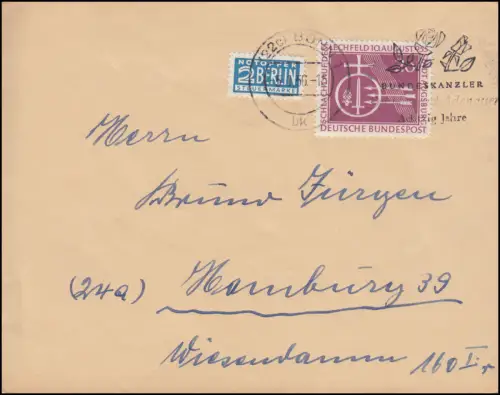 (22c) BONN
NOTOPFER
2 BERLIN
STEUERMARKE
SCHLACHT AUF DEM LECHFELD 10. AUGUST 955
AUGSBURG
DEUTSCHE BUNDESPOST
BUNDESKANZLER
Achtzig Jahre
Herrn
Bruno Jürgen
(24a) Hamburg 39
Wiesendamm 160 I r